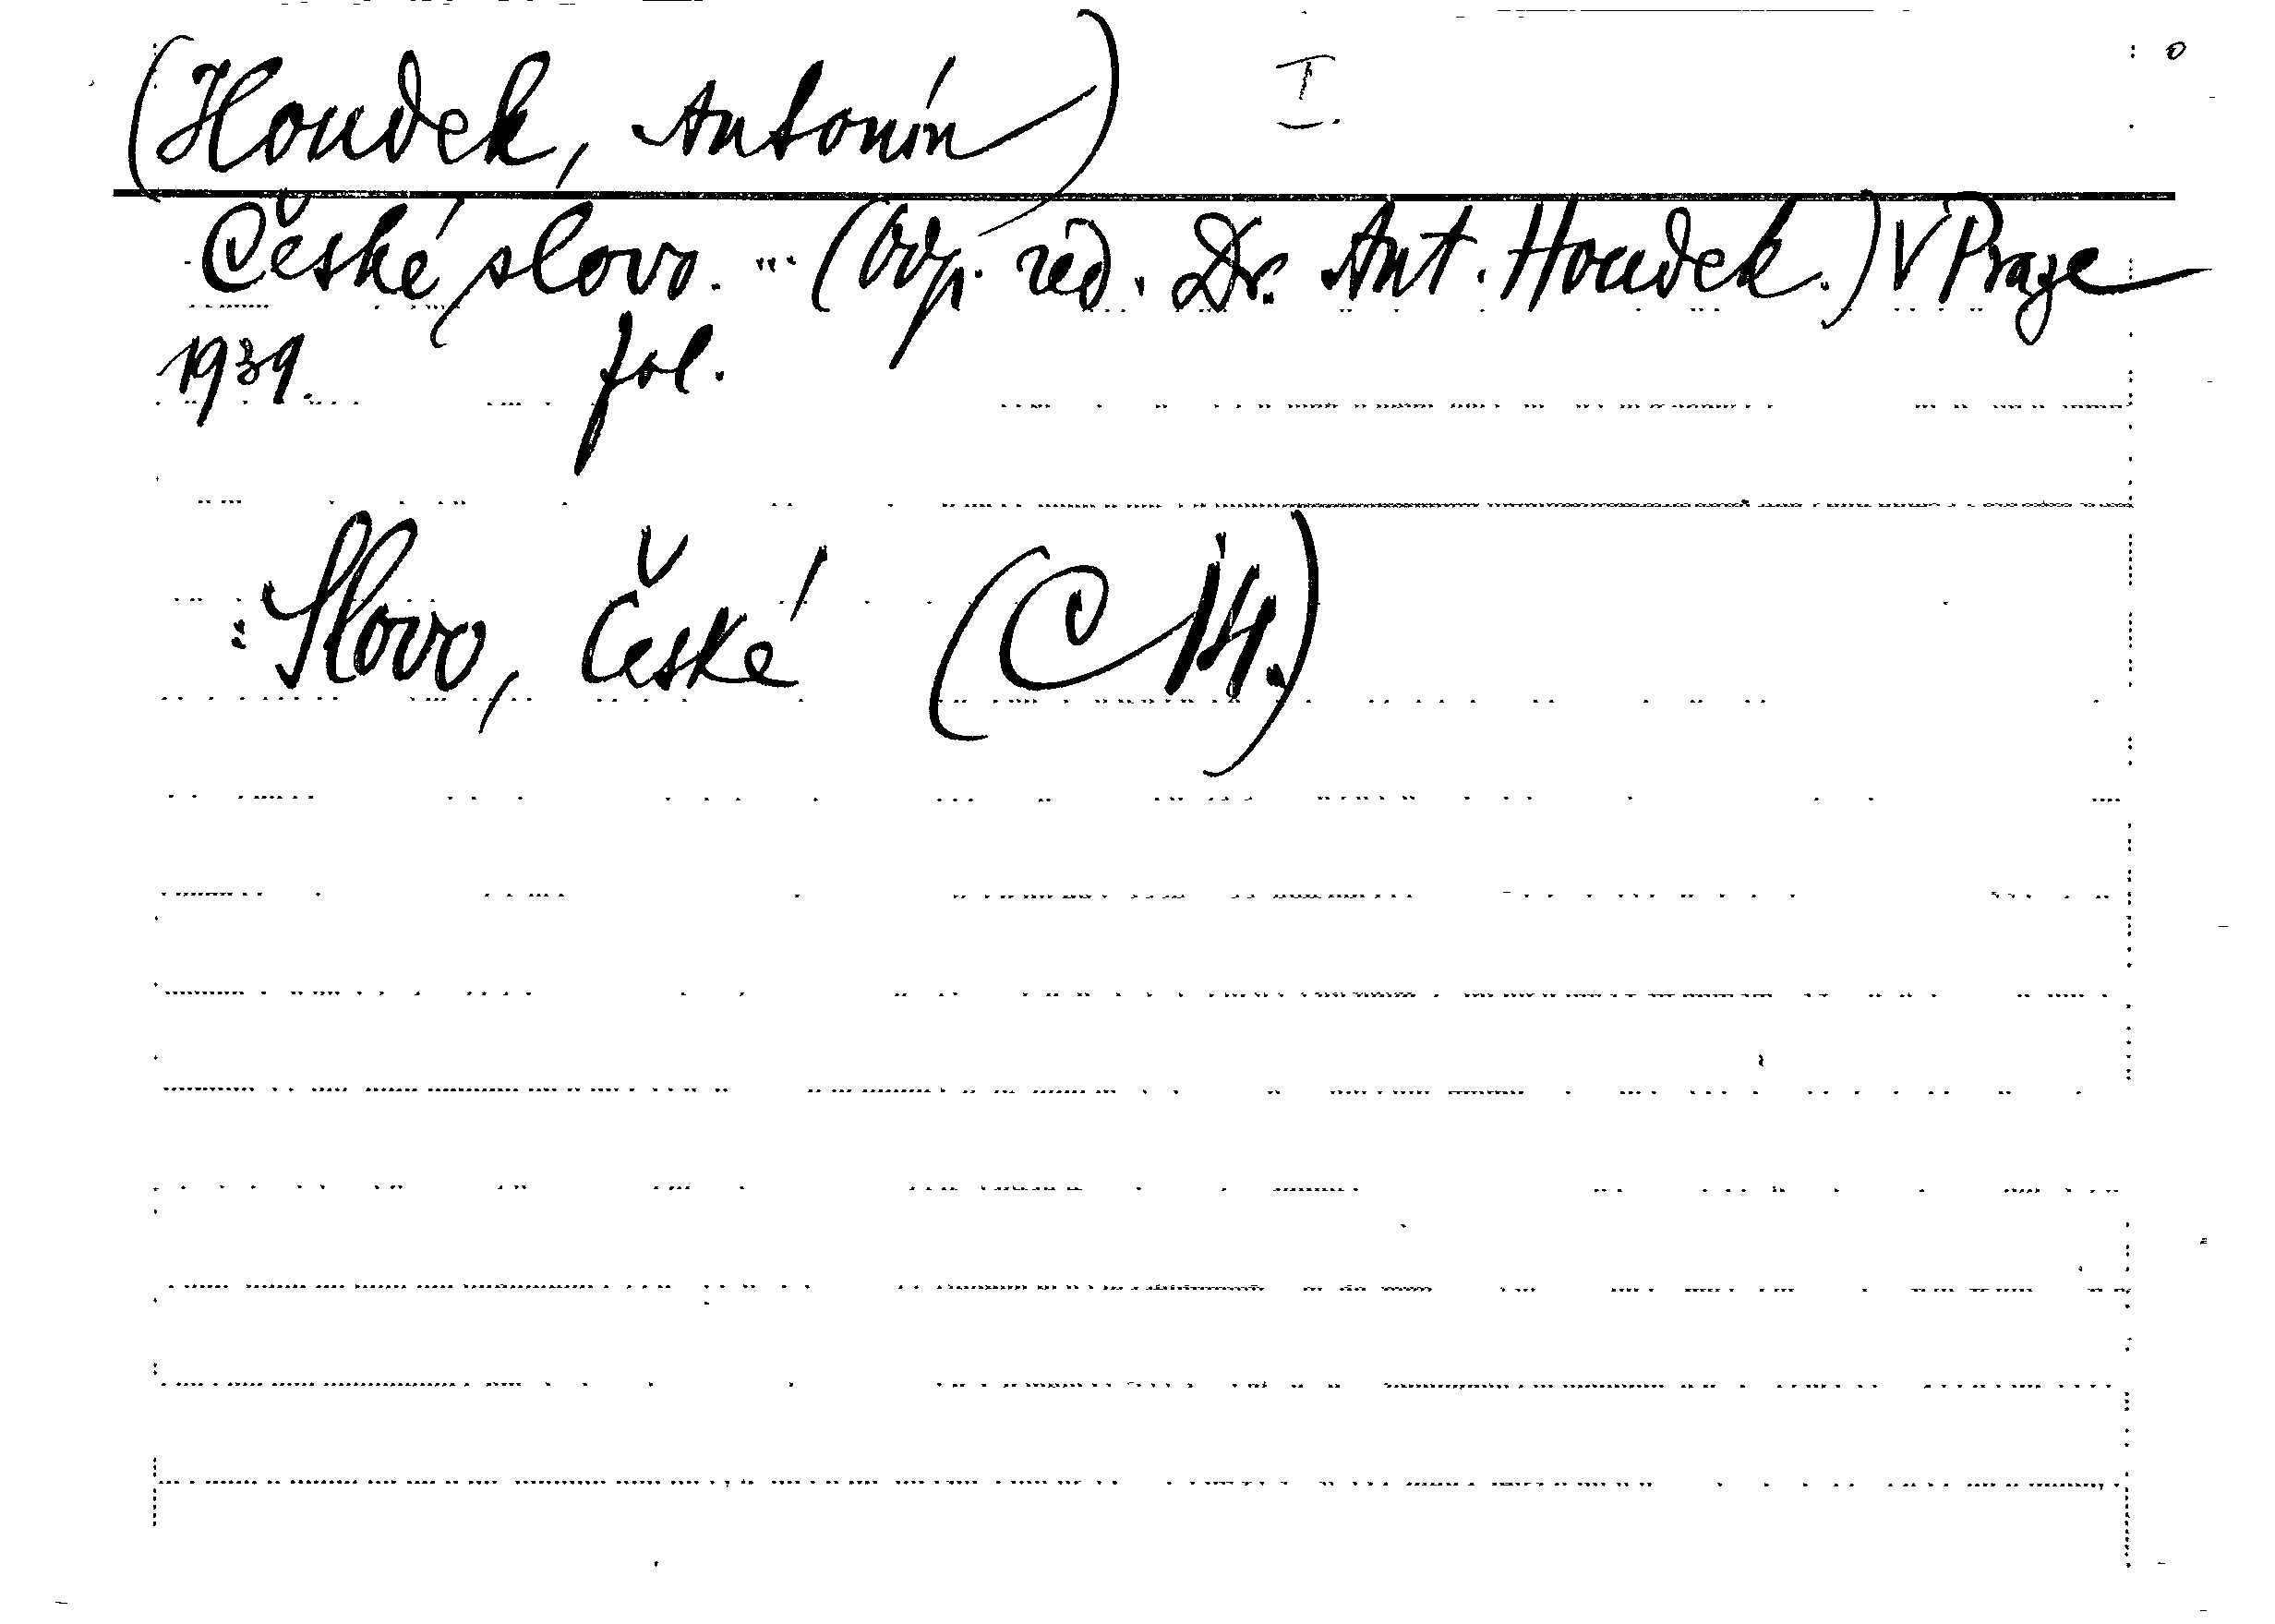 (Houdek, Antonín) I.
České slovo. ... (Odp. red. Dr. Ant. Houdek.) V Praze
1939. fol.
: Slovo, České